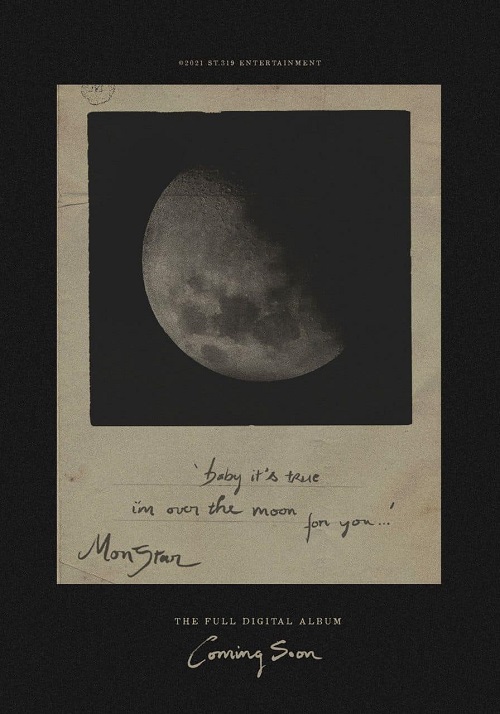 ©2021 ST.319 ENTERTAINMENT
'baby it's true
i'm over the moon
for you...'
MonStar
THE FULL DIGITAL ALBUM
Coming Soon